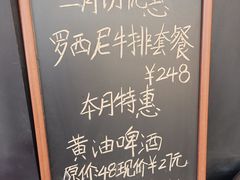 二月份优惠
罗西尼牛排套餐
￥248
本月特惠
黄油啤酒
原价48现价￥27元